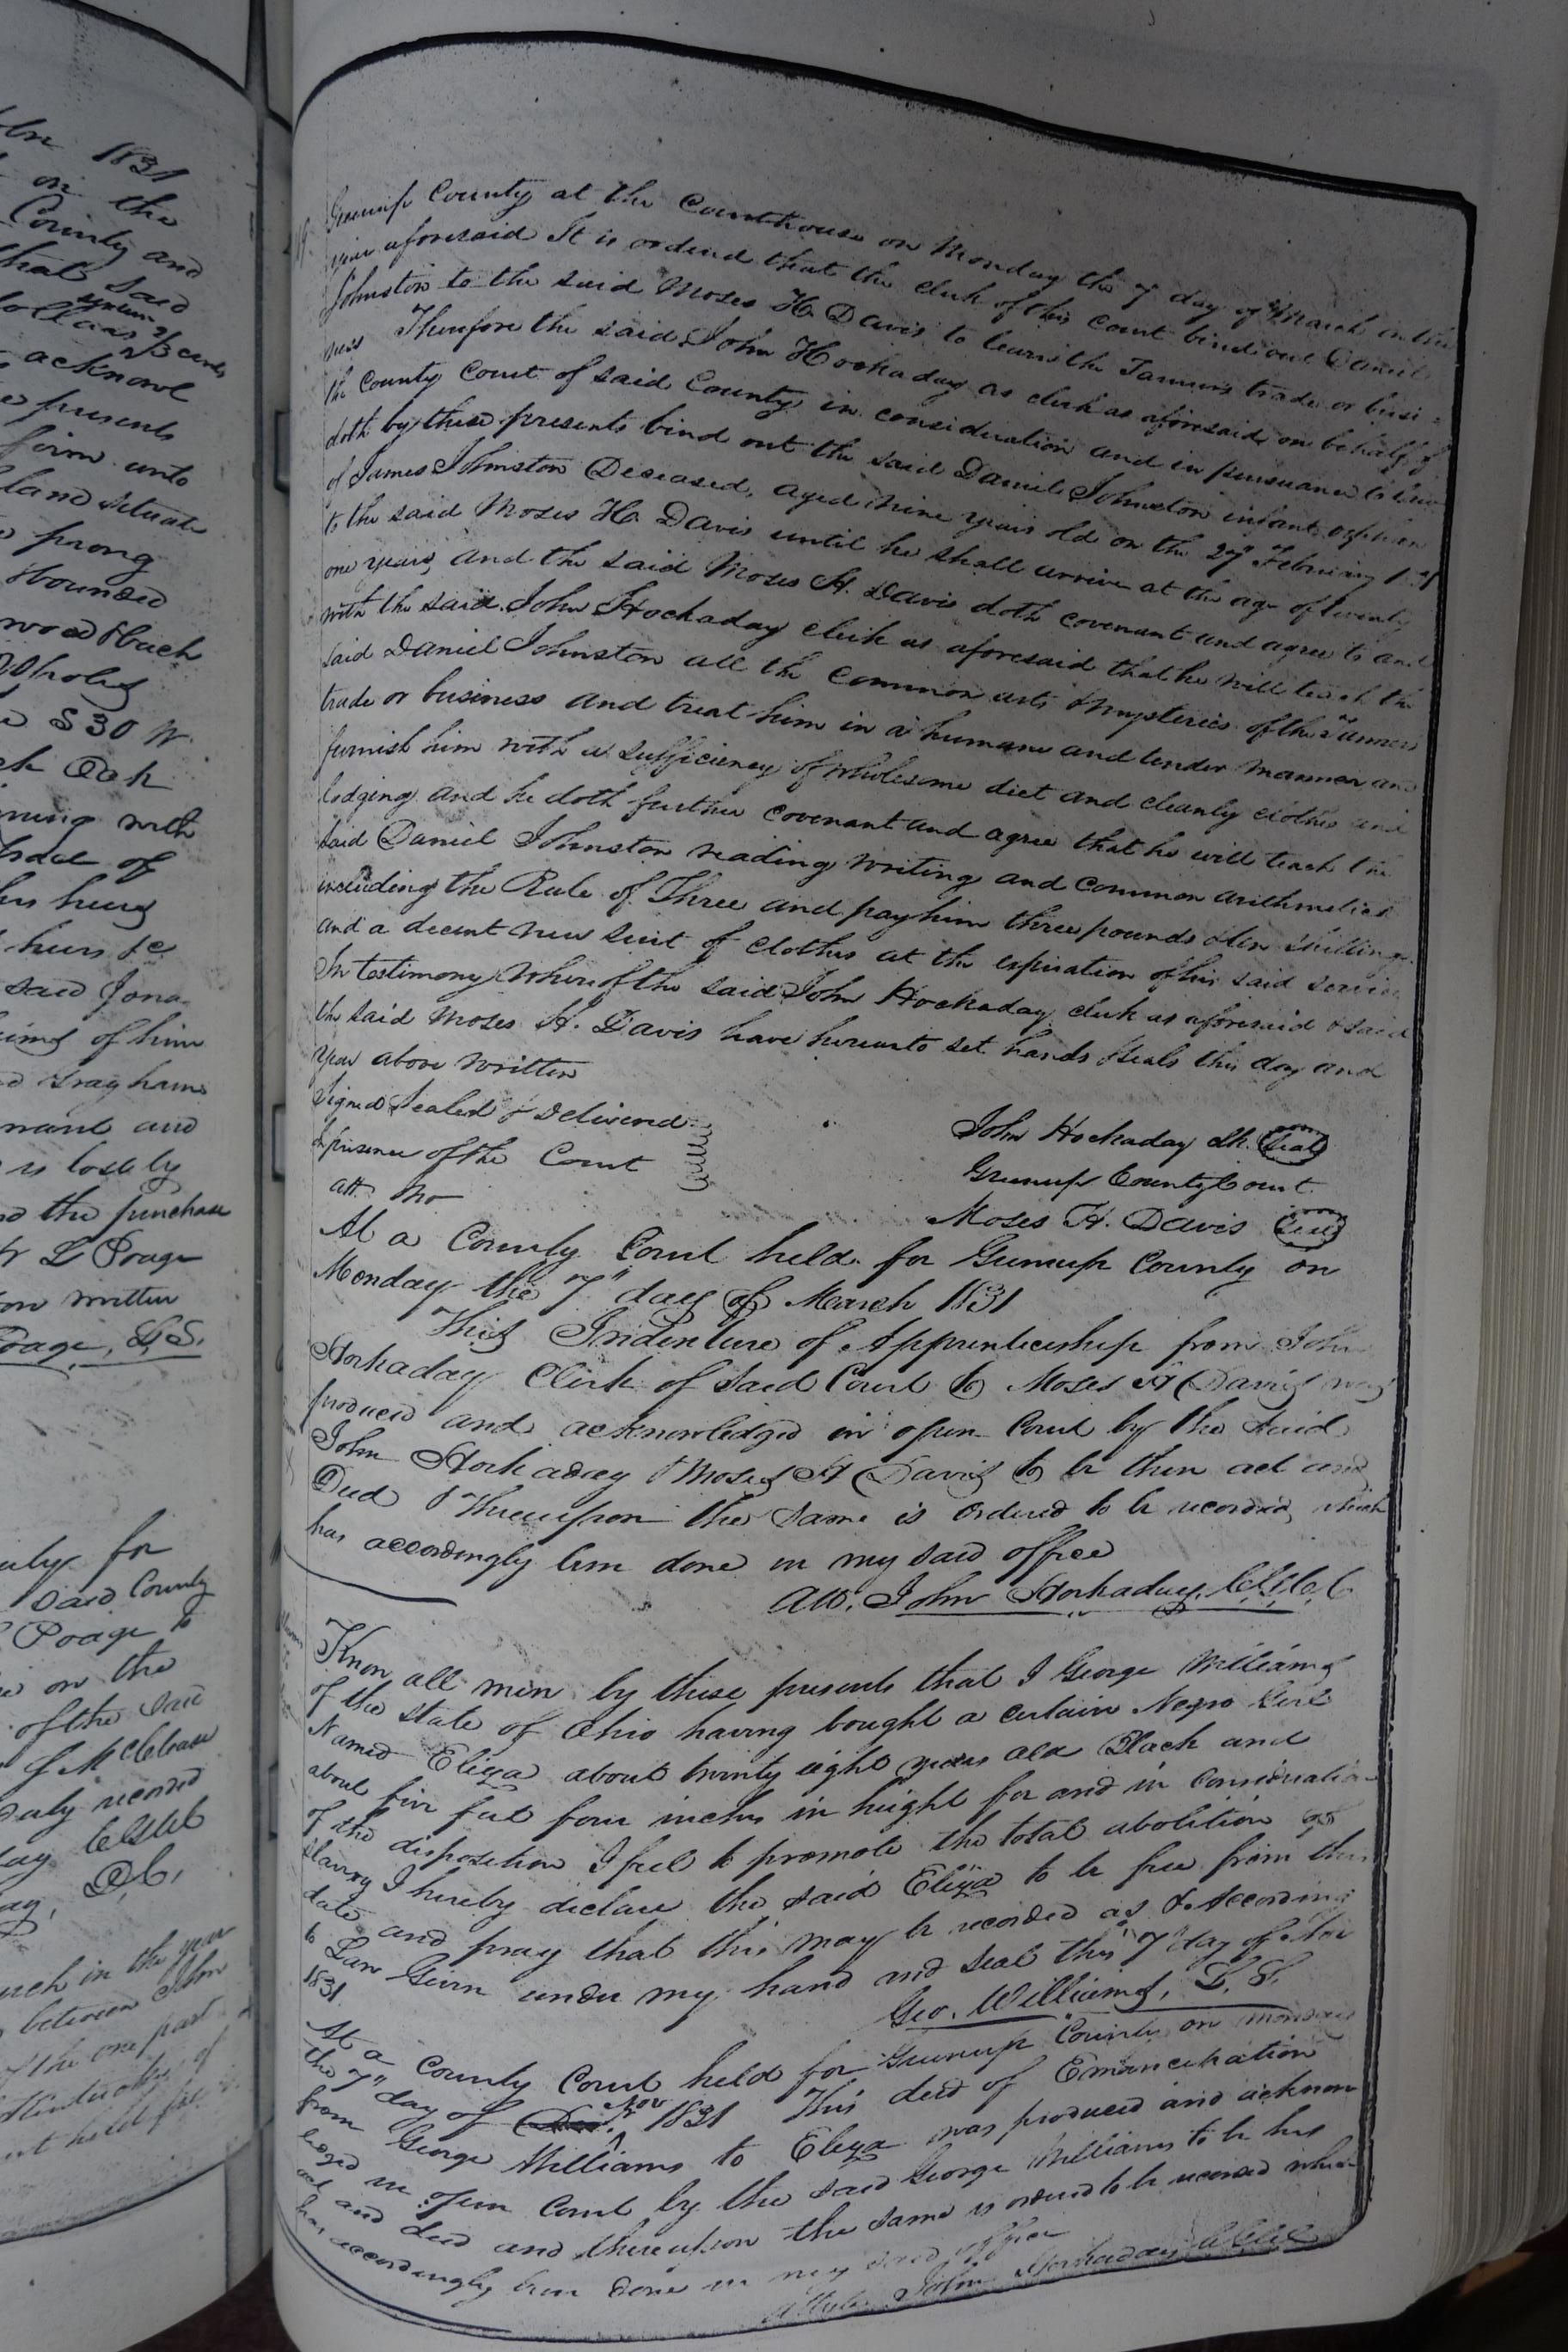 Greenup County at the Courthouse on Monday the 7 day of March in the
year aforesaid It is orderd that the clerk of this Court bind out Daniel
Johnston to the said Moses H. Davis to learn the Tanners trade or busi=
ness Therefore the said John Hockaday as clerk as aforesaid on behalf of
the County Court of said County in consideration and in pursuance to law
doth by these presents bind out the said Daniel Johnston infant orphan
of James Johnston Deceased, aged nine years old on the 27 February
to the said Moses H. Davis until he shall arrive at the age of twenty
one years, and the said Moses H. Davis doth covenant and agree to and
with the said John Hockaday clerk as aforesaid that he will teach the
said Daniel Johnston all the common arts & mysteries of the Tanners
trade or business and treat him in a humane and tender manner and
furnish him with a sufficiency of wholesome diet and cleanly clothes and
lodging and he doth further covenant and agree that he will teach the
said Daniel Johnston reading writing and common arithmetick
including the Rule of Three and pay him three pounds ten shillings
and a decent new suit of clothes at the expiration of his said service
In testimony whereof the said John Hockaday clerk as aforesaid & said
the said Moses H. Davis have hereunto set hands & seals this day and
year above written
Signed Sealed & Delivered
presence of the Court
att
John Hockaday Clk. Seal
Greenup County Court
Moses H. Davis Seal
At a County Court held for Greenup County on
Monday the 7" day of March 1831
This Indenture of Apprenticeship from John
Hockaday Clerk of said Court to Moses H Davis was
produced and acknowledged in open Court by the said
John Hockaday & Moses H Davis to be their act and
Deed & Thereupon the same is ordered to be recorded, which
has accordingly been done in my said office
Att. John Hockaday,
Know all men by these presents that I George Williams
of the State of Ohio having bought a certain Negro Girl
Named Eliza about twenty eight years old Black and
about five feet four inches in height for and in consideration
of the disposition I feel to promote the total abolition of
slavery I hereby declare the said Eliza to be free from this
date and pray that this may be recorded as & according
to Law Given under my hand and seal this 7" day of Nov
1831
Geo. Williams, L. S.
At a County Court held for Greenup County on monday
the 7" day of Nov 1831 This deed of Emancipation
from George Williams to Eliza was produced and acknow
ledged in open Court by the said George Williams to be his
act and deed and thereupon the same is ordered to be recorded which
has accordingly been done in my said office
John Hockaday
1831
on the
County and
that said
acknowl
presents
firm unto
land situate
prong
bounded
S 30 W
Oak
with
of
said Jona
of him
and
is lost by
the purchase
L Poage
written
for
said County
Poage to
on the
of the said
recorded
in the year
between John
the one part